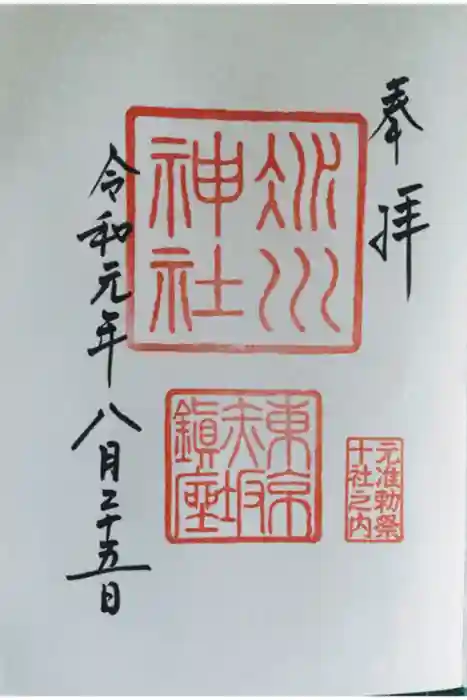 奉拝
氷川
神社
東京
赤坂
鎮座
元准勅祭
十社之内
令和元年八月二十五日